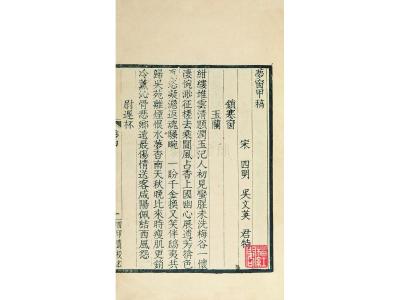 夢窗甲稿
宋 四明 吳文英 君特
鎖寒窗
玉蘭
紺縷堆雲清顋潤玉汜人初見蠻腥未洗梅谷一懷
淒惋渺征槎去乘閬風占香上國幽心展遺芳掩色
真恣凝澹返魂騷畹 一盼千金換又笑伴鴟夷共
歸吳苑離煙恨水夢杳南天秋晚比來時瘦肌更銷
冷薰沁骨悲鄉遠最傷情送客咸陽佩結西風怨
尉遲杯